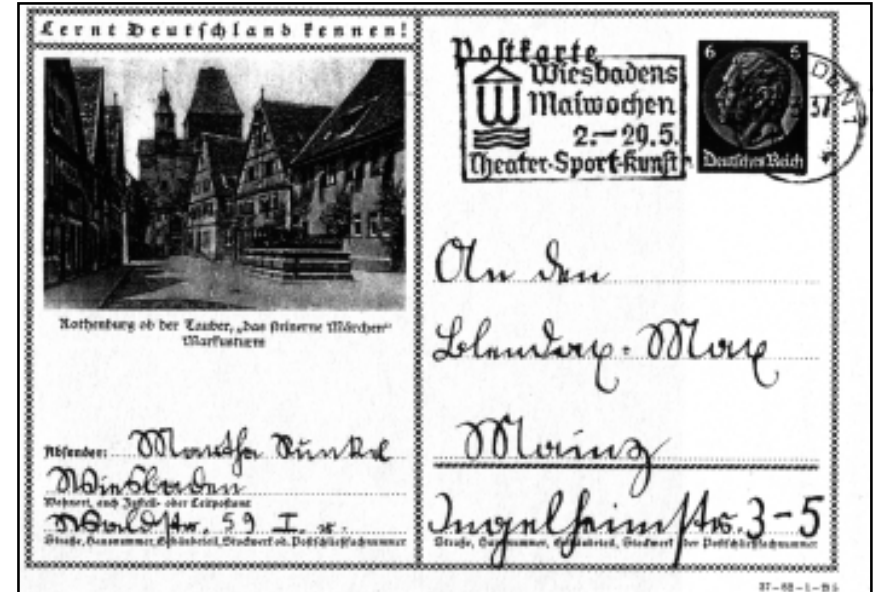 Lernt Deutschland kennen!
Rothenburg ob der Tauber, „das steinerne Märchen“
Markusturm
Absender: Martha Runkel
Wiesbaden
Wohnort, auch Zustell- oder Leitpostamt
Waldstr. 59 I. r.
Straße, Hausnummer, Gebäudeteil, Stockwerk od. Postschließfachnummer
Postkarte
Wiesbadens
Maiwochen
2.–29.5.
Theater-Sport-Kunst
6 6
Deutsches Reich
37
An den
Blendax-Max
Mainz
Ingelheimstr. 3-5
Straße, Hausnummer, Gebäudeteil, Stockwerk oder Postschließfachnummer